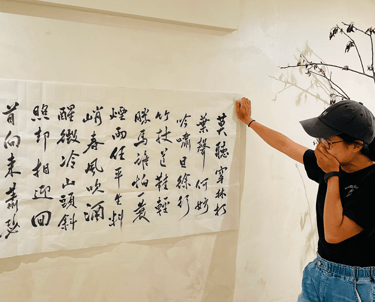 莫聽穿林打
葉聲何妨
吟嘯且徐行
竹杖芒鞋輕
勝馬誰怕一蓑
煙雨任平生料
峭春風吹酒
醒微冷山頭斜
照卻相迎回
首向來蕭瑟